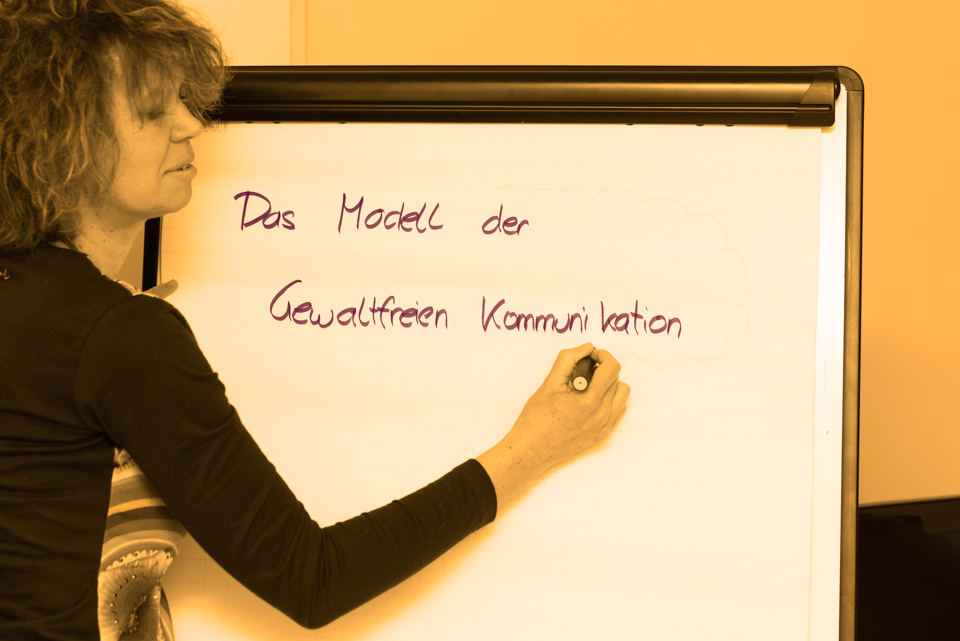 Das Modell der
Gewaltfreien Kommunikation